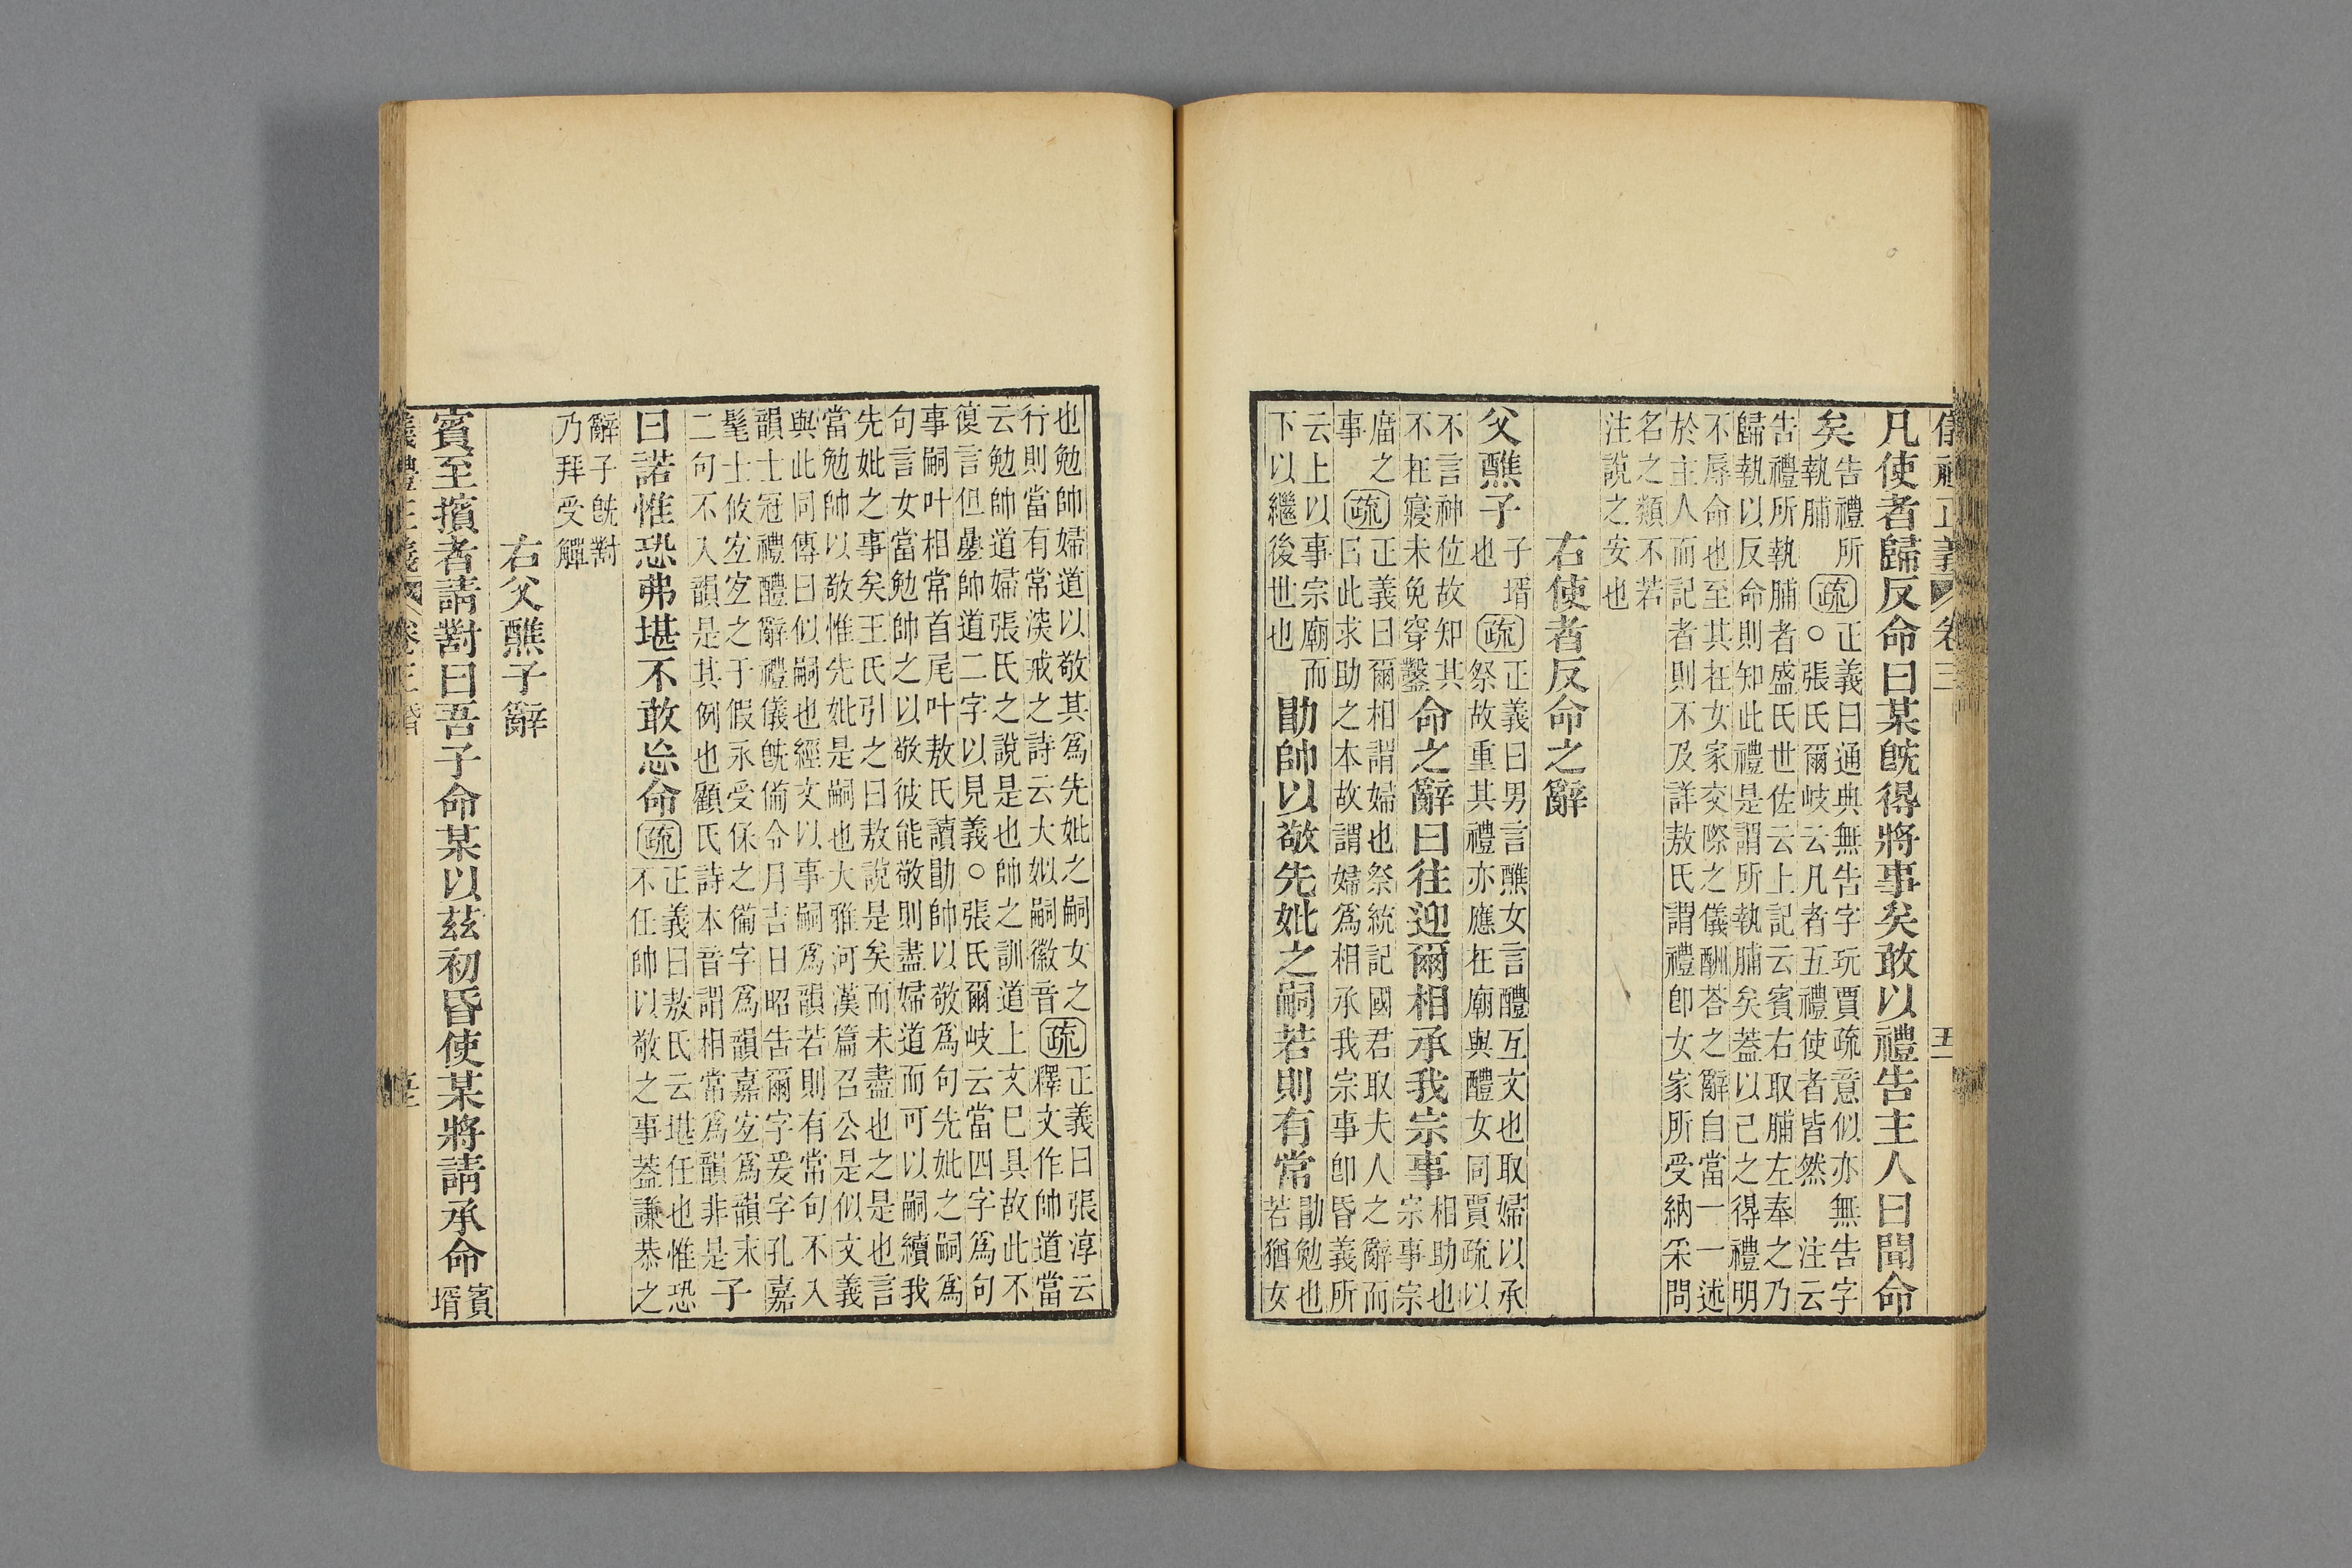 儀禮正義 卷三 五
凡使者歸反命曰某旣得將事矣敢以禮告主人曰聞命
矣告禮所執脯疏正義曰通典無告字玩賈疏意似亦無告字○張氏爾岐云凡者五禮使者皆然 注云
告禮所執脯者盛氏世佐云上記云賓右取脯左奉之乃
歸執以反命則知此禮是謂所執脯矣蓋以己之得禮明
不辱命也至其在女家交際之儀酬荅之辭自當一一述
於主人而記者則不及詳敖氏謂禮卽女家所受納采問
名之類不若
注說之安也
右使者反命之辭
父醮子子壻也疏正義曰男言醮女言醴互文也取婦以承祭故重其禮亦應在廟與醴女同賈疏以
不言神位故知其不在寢未免穿鑿命之辭曰往迎爾相承我宗事相助也宗事宗
廟之事疏正義曰爾相謂婦也祭統記國君取夫人之辭而曰此求助之本故謂婦爲相承我宗事卽昏義所
云上以事宗廟而下以繼後世也勖帥以敬先妣之嗣若則有常勖勉也若猶女
也勉帥婦道以敬其爲先妣之嗣女之行則當有常深戒之詩云大姒嗣徽音疏正義曰張淳云釋文作帥道當
云勉帥道婦張氏之說是也帥之訓道上文已具故此不
復言但壘帥道二字以見義○張氏爾岐云當四字爲句
事嗣叶相常首尾叶敖氏讀勖帥以敬爲句先妣之嗣爲
句言女當勉帥之以敬彼能敬則盡婦道而可以嗣續我
先妣之事矣王氏引之曰敖說是矣而未盡也之是也言
當勉帥以敬惟先妣是嗣也大雅河漢篇召公是似文義
與此同傳曰似嗣也經文以事嗣爲韻若則有常句不入
韻士冠禮醴辭禮儀旣備令月吉日昭告爾字爰字孔嘉
髦士攸宜宜之于假永受保之備字爲韻嘉宜爲韻末
二句不入韻是其例也顧氏詩本音謂相常爲韻非是子
曰諾惟恐弗堪不敢忘命疏正義曰敖氏云堪任也惟恐不任帥以敬之事蓋謙恭之
辭子旣對
乃拜受觶
右父醮子辭
賓至擯者請對曰吾子命某以茲初昏使某將請承命賓壻
儀禮正義 卷三 昏